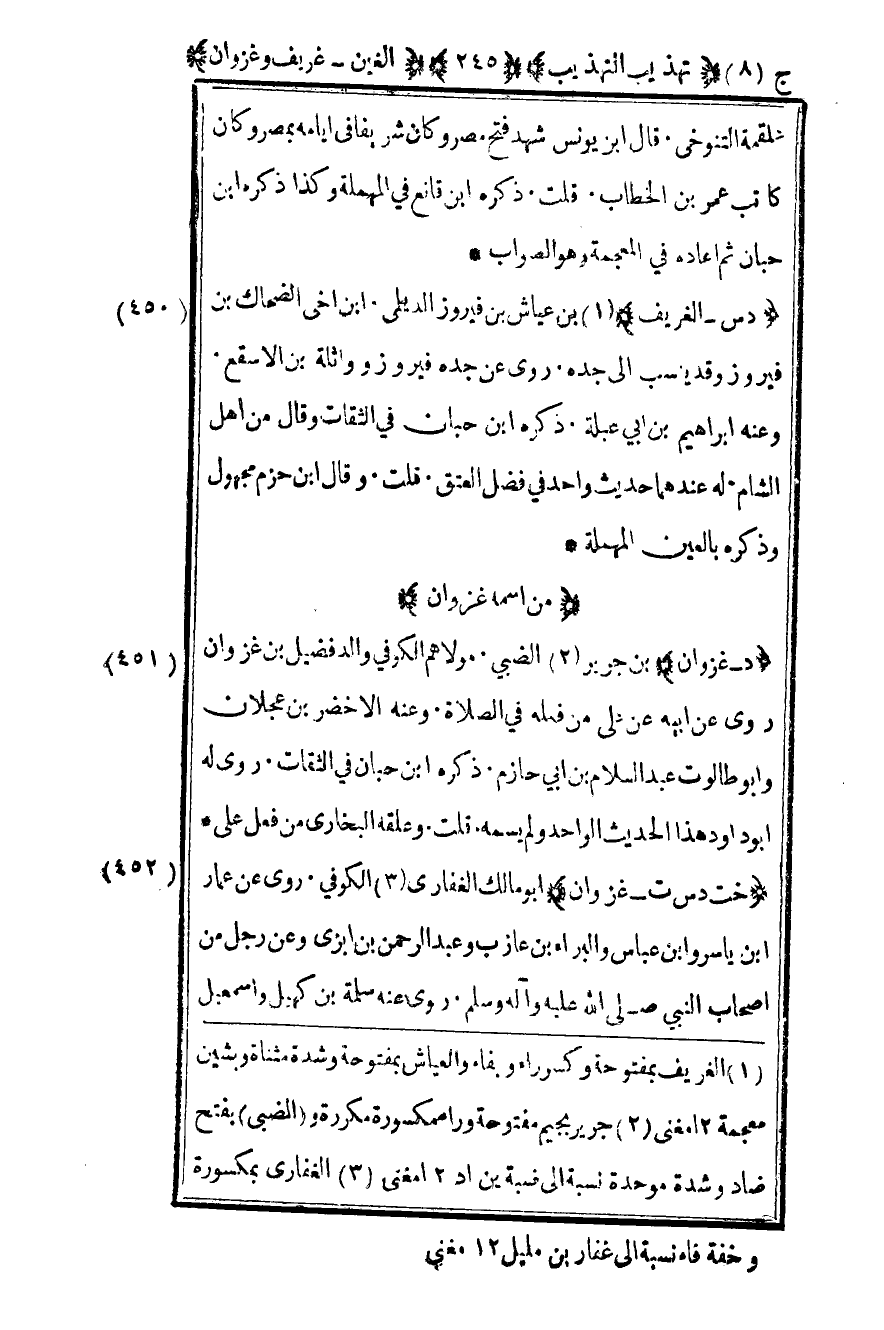 ج (٨) ﴿ تهذيب التهذيب ﴾ ﴿ ٢٤٥ ﴾ ﴿ الغين ـ غريف وغزوان ﴾
علقمة التنوخي · قال ابن يونس شهد فتح مصر وكان شريفا في ايامه بمصر وكان
كاتب عمر بن الخطاب · قلت · ذكره ابن قانع في المهملة وكذا ذكره ابن
حبان ثم اعاده في المعجمة وهو الصواب *
(٤٥٠) ﴿ دس ـ الغريف ﴾ (١) بن عياش بن فيروز الديلمي · ابن اخى الضحاك بن
فيروز وقد ينسب الى جده · روى عن جده فيروز وواثلة بن الاسقع ·
وعنه ابراهيم بن ابي عبلة · ذكره ابن حبان في الثقات وقال من اهل
الشام · له عندهما حديث واحد في فضل العتق · قلت · وقال ابن حزم مجهول
وذكره بالعين المهملة *
﴿ من اسمه غزوان ﴾
(٤٥١) ﴿ د ـ غزوان ﴾ بن جرير (٢) الضبي · مولاهم الكوفي والد فضيل بن غزوان
روى عن ابيه عن علي من فعله في الصلاة · وعنه الاخضر بن عجلان
وابو طالوت عبد السلام بن ابي حازم · ذكره ابن حبان في الثقات · روى له
ابو داود هذا الحديث الواحد ولم يسمه · قلت · وعلقه البخاري من فعل علي *
(٤٥٢) ﴿ خت دس ت ـ غزوان ﴾ ابو مالك الغفاري (٣) الكوفي · روى عن عمار
ابن ياسر وابن عباس والبراء بن عازب وعبد الرحمن بن ابزى وعن رجل من
اصحاب النبي صلى الله عليه وآله وسلم · روى عنه سلمة بن كهيل واسمعيل
(١) الغريف بمفتوحة وكسر راء وبفاء والعياش بمفتوحة وشدة مثناة وبشين
معجمة ١٢ مغنى (٢) جرير بجيم مفتوحة وراء مكسورة مكررة و(الضبى) بفتح
ضاد وشدة موحدة نسبة الى ضبة بن اد ١٢ مغنى (٣) الغفارى بمكسورة
وخفة فاء نسبة الى غفار بن مليل ١٢ مغني